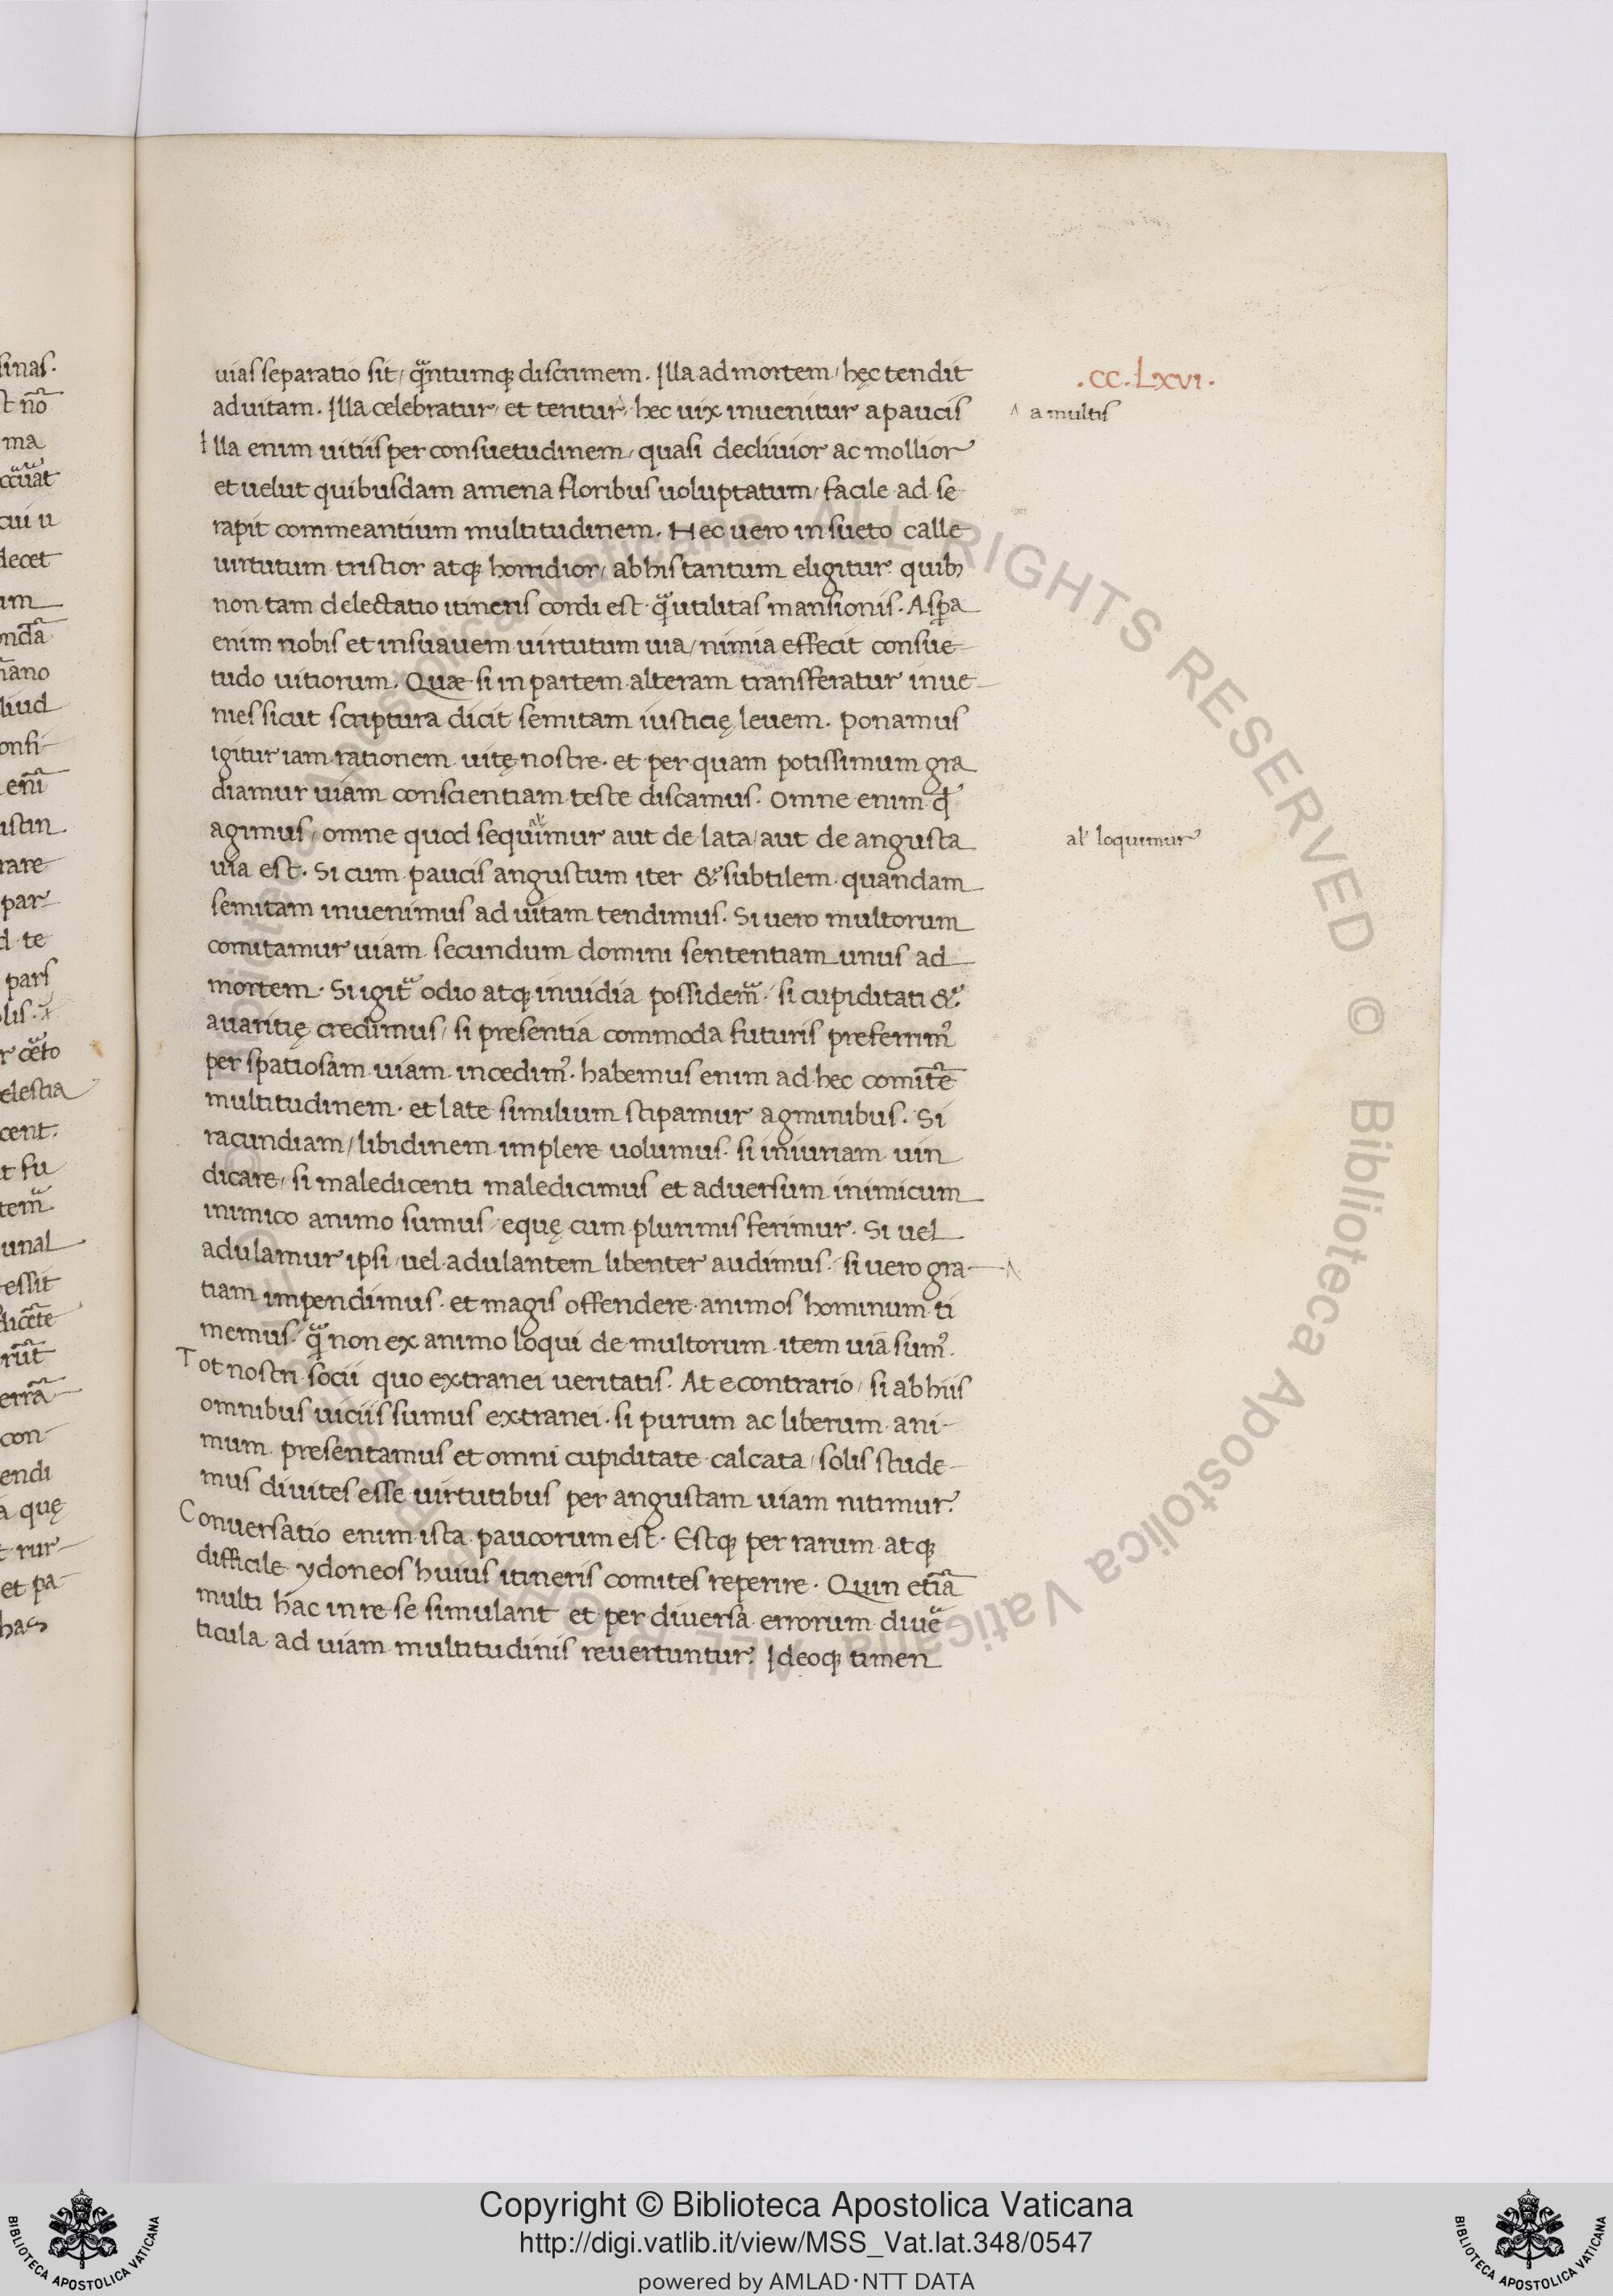 uias separatio sit, qͣntumqꝫ discrimem. Illa ad mortem, hęc tendit
ad uitam. Illa celebratur, et teritur, hec uix inuenitur a paucis
Illa enim uitiis per consuetudinem, quasi decliuior ac mollior
et uelut quibusdam amena floribus uoluptatum, facile ad se
rapit commeantium multitudinem. Hec uero insueto calle
uirtutum tristior atqꝫ horridior, ab his tantum eligitur quibꝫ
non tam delectatio itineris cordi est qͣ̄ utilitas mansionis. Asꝑa
enim nobis et insuauem uirtutum uia, nimia effecit consue-
tudo uitiorum. Quæ si in partem alteram transferatur inue-
nies sicut scriptura dicit semitam iusticię leuem. Ponamus
igitur iam rationem uitę nostre. et per quam potissimum gra
diamur uiam conscientiam teste discamus. Omne enim qđ
agimus, omne quod sequimur aut de lata, aut de angusta
uia est. Si cum paucis angustum iter & subtilem quandam
semitam inuenimus ad uitam tendimus. Si uero multorum
comitamur uiam secundum domini sententiam unus ad
mortem. Si igit᷑ odio atqꝫ inuidia possidem᷑. si cupiditati &
auaritię credimus, si presentia commoda futuris preferrimꝰ
per spatiosam uiam incedimꝰ. habemus enim ad hec comitē
multitudinem. et late similium stipamur agminibus. Si
racundiam, libidinem implere uolumus. si iniuriam uin
dicare, si maledicenti maledicimus et aduersum inimicum
inimico animo sumus, equę cum plurimis ferimur. Si uel
adulamur ipsi, uel adulantem libenter audimus. si uero gra-
tiam impendimus. et magis offendere animos hominum ti
memus. qͣ̄ non ex animo loqui de multorum item uiā sumꝰ.
Tot nostri socii quo extranei ueritatis. At econtrario, si ab hiis
omnibus uiciis sumus extranei. si purum ac liberum ani-
mum presentamus et omni cupiditate calcata, solis stude-
mus diuites esse uirtutibus per angustam uiam nitimur.
Conuersatio enim ista paucorum est. Estqꝫ per rarum atqꝫ
difficile ydoneos huius itineris comites reperire. Quin etiā
multi hac in re se simulant et per diuersa errorum diuē
ticula ad uiam multitudinis reuertuntur. Ideoqꝫ timen
.CC.LXVI.
a multis
al' loquimur
Copyright © Biblioteca Apostolica Vaticana
http://digi.vatlib.it/view/MSS_Vat.lat.348/0547
powered by AMLAD・NTT DATA
BIBLIOTECA APOSTOLICA VATICANA
BIBLIOTECA APOSTOLICA VATICANA